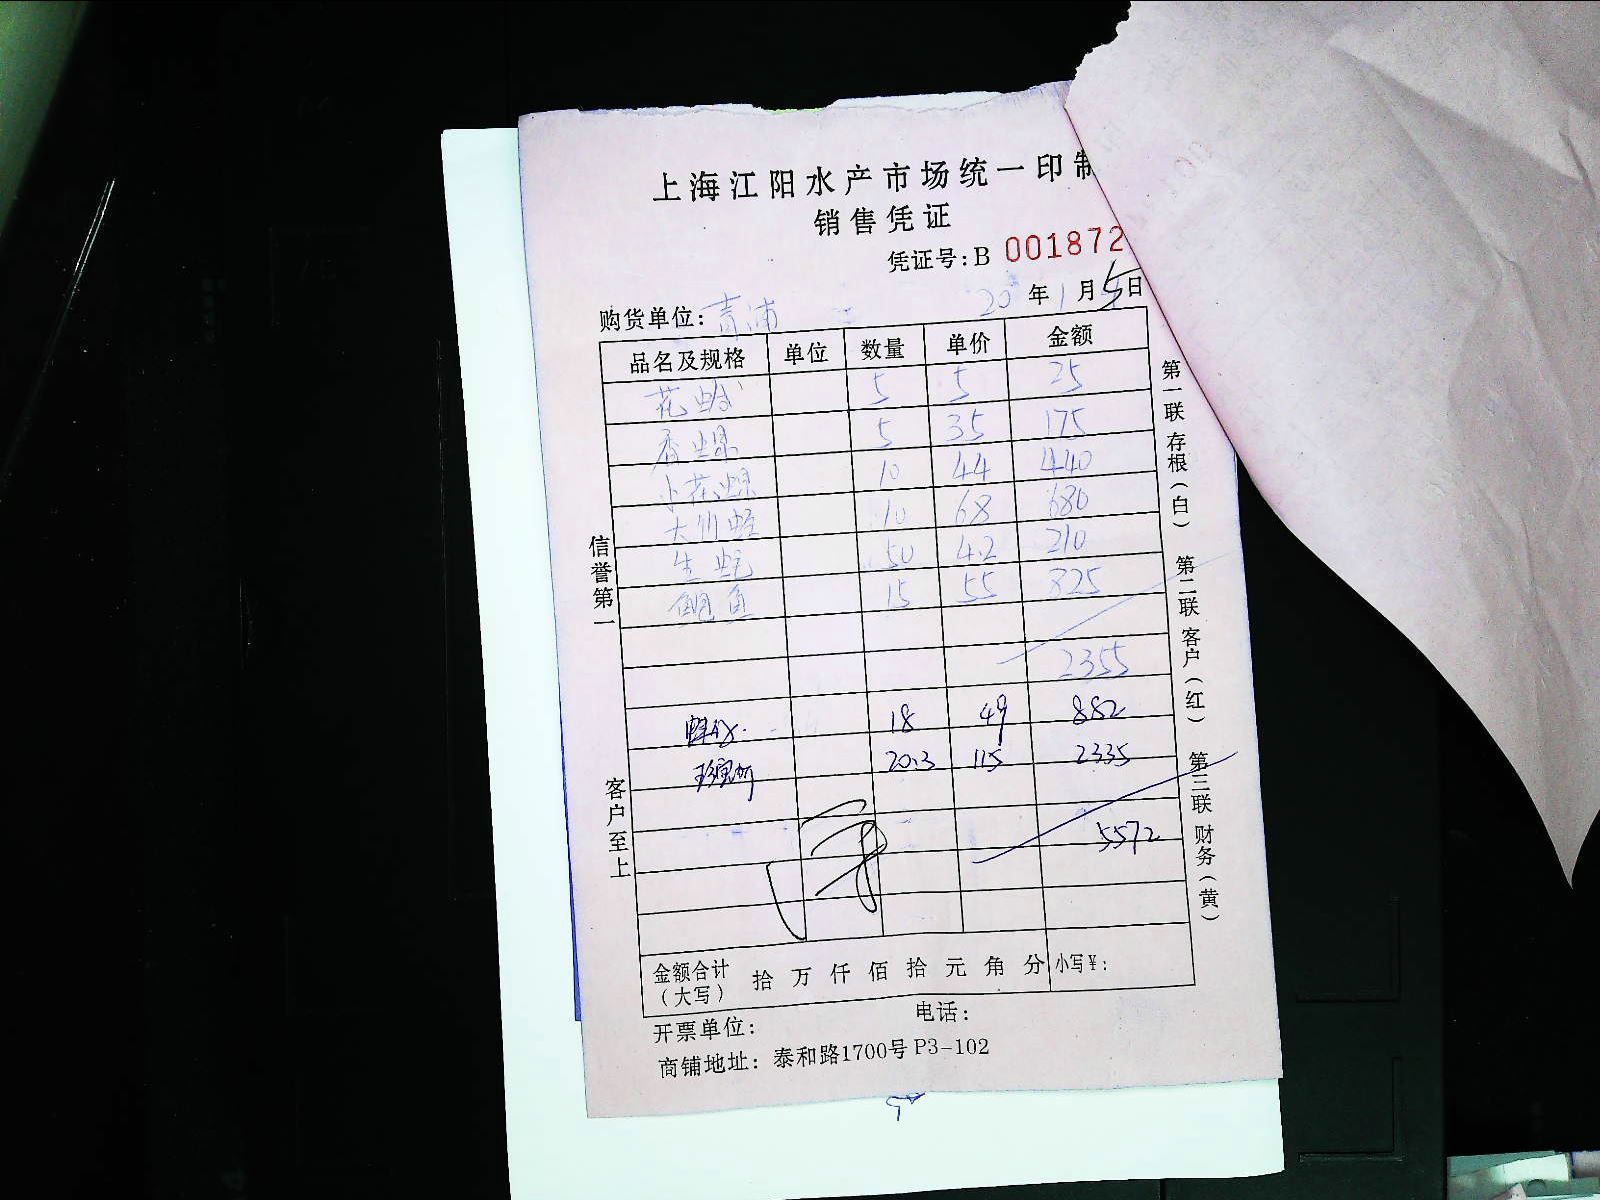 上海江阳水产市场统一印制
销售凭证
凭证号:B 001872
购货单位: 青浦 20 年 1 月 5 日
品名及规格 单位 数量 单价 金额
花蛤 5 5 25
香螺 5 35 175
小花螺 10 44 440
大竹蛏 10 68 680
生蚝 50 4.2 210
鲍鱼 15 55 825
2355
18 49 882
20.3 115 2335
5572
金额合计(大写) 拾 万 仟 佰 拾 元 角 分 小写¥:
开票单位: 电话:
商铺地址: 泰和路1700号P3-102
信誉第一
客户至上
第一联 存根(白)
第二联 客户(红)
第三联 财务(黄)